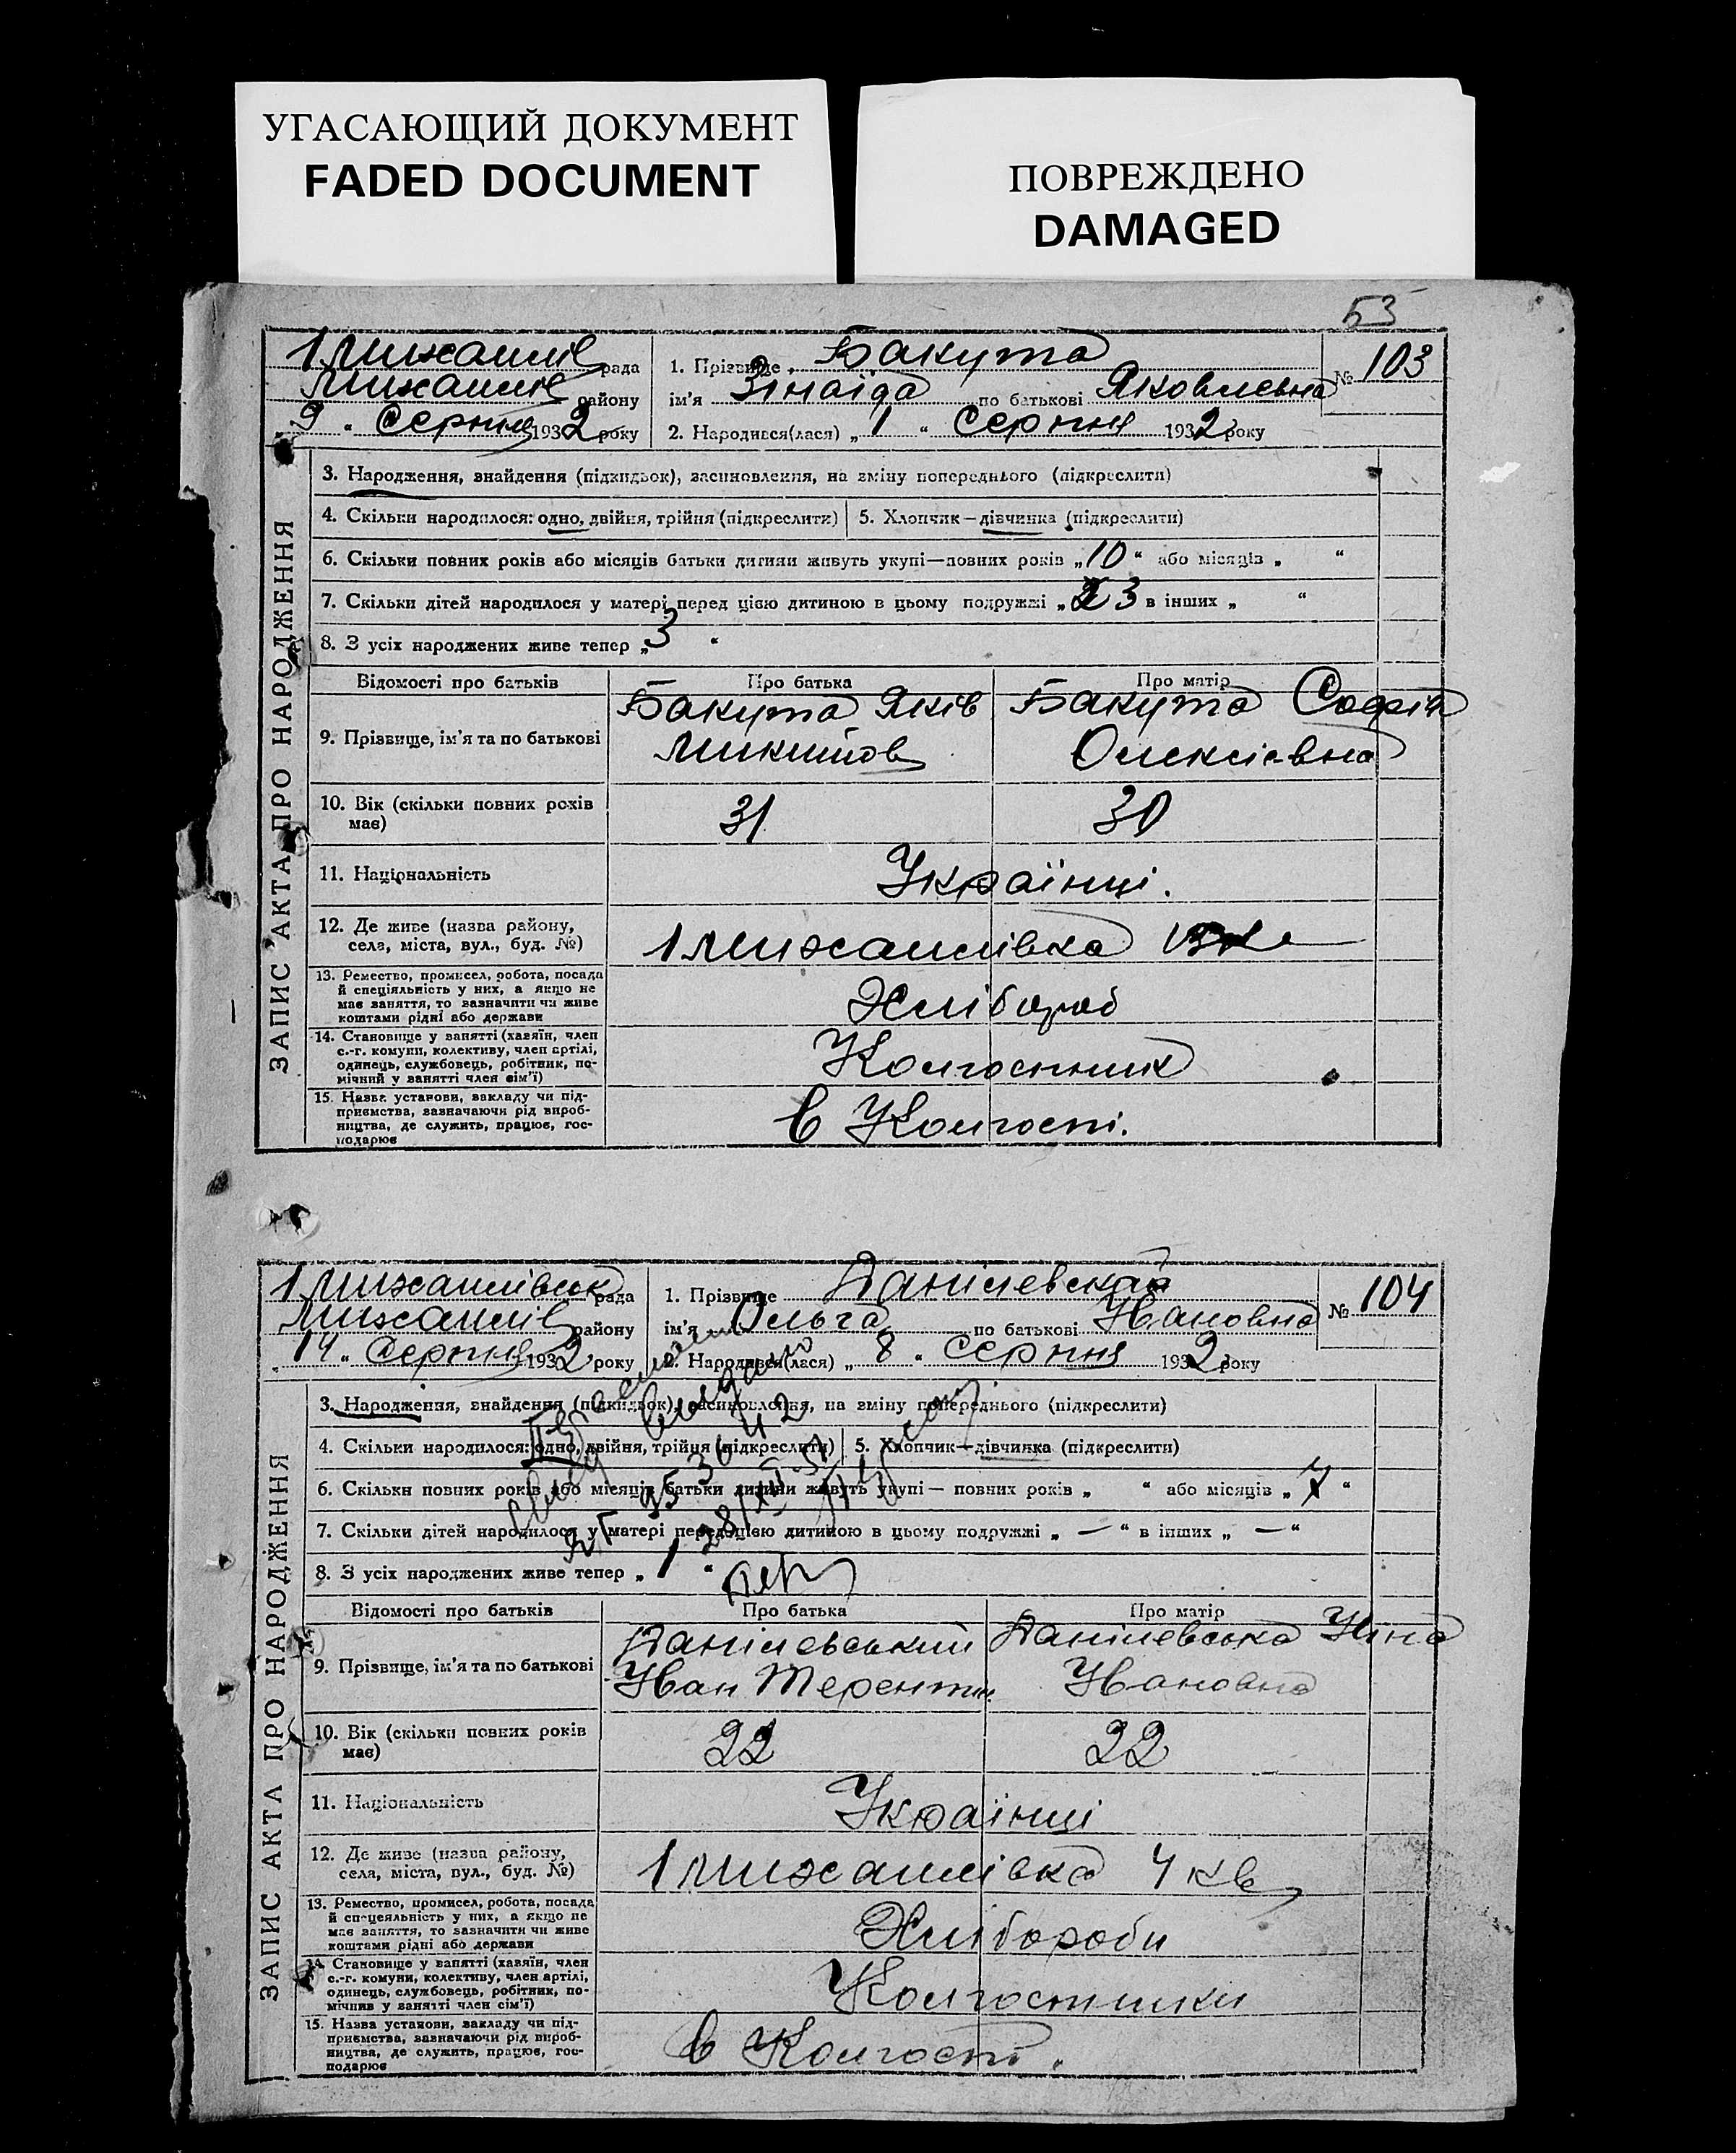 УГАСАЮЩИЙ ДОКУМЕНТ
FADED DOCUMENT
ПОВРЕЖДЕНО
DAMAGED
53
ЗАПИС АКТА ПРО НАРОДЖЕННЯ
1 Михайлів рада
Михайлів району
„9“ Серпня 1932 року
1. Прізвище Бакута
ім'я Зінаїда по батькові Яковлевна
2. Народився(лася) „1“ Серпня 1932 року
№ 103
3. Народження, знайдення (підкидьок), засиновлення, на зміну попереднього (підкреслити)
4. Скільки народилося: одно, двійня, трійня (підкреслити) 5. Хлопчик—дівчинка (підкреслити)
6. Скільки повних років або місяців батьки дитини живуть укупі—повних років „10“ або місяців „ “
7. Скільки дітей народилося у матері перед цією дитиною в цьому подружжі „3 в інших „ “
8. З усіх народжених живе тепер „3“
Відомості про батьків Про батька Про матір
9. Прізвище, ім'я та по батькові
Бакута Яків
Микитов
Бакута Софія
Олексієвна
10. Вік (скільки повних років
має)
31 30
11. Національність Українці.
12. Де живе (назва району,
села, міста, вул., буд. №)
1 Михайлівка
13. Ремество, промисел, робота, посада
й спеціяльність у них, а якщо не
має заняття, то зазначити чи живе
коштами рідні або держави
Хлібороб
14. Становище у занятті (хазяїн, член
с.-г. комуни, колективу, член артілі,
одинець, службовець, робітник, по-
мічний у занятті член сім'ї)
Колгоспник
15. Назва установи, закладу чи під-
приємства, зазначаючи рід вироб-
ництва, де служить, працює, гос-
подарює
в Колгоспі.
ЗАПИС АКТА ПРО НАРОДЖЕННЯ
1 Михайлівськ рада
Михайлів району
„14“ Серпня 1932 року
1. Прізвище Данілевская
ім'я Ольга по батькові Ивановна
2. Народився(лася) „8“ Серпня 1932 року
№ 104
3. Народження, знайдення (підкидьок), засиновлення, на зміну попереднього (підкреслити)
4. Скільки народилося: одно, двійня, трійня (підкреслити) 5. Хлопчик—дівчинка (підкреслити)
6. Скільки повних років або місяців батьки дитини живуть укупі— повних років „ “ або місяців „7“
7. Скільки дітей народилося у матері перед цією дитиною в цьому подружжі „—“ в інших „—“
8. З усіх народжених живе тепер „1“
Відомості про батьків Про батька Про матір
9. Прізвище, ім'я та по батькові
Данілевський
Иван Терентив
Данілевська Нина
Ивановна
10. Вік (скільки повних років
має)
22 22
11. Національність Українці
12. Де живе (назва району,
села, міста, вул., буд. №)
1 Михайлівка 4 кв
13. Ремество, промисел, робота, посада
й спецеяльність у них, а якщо не
має заняття, то зазначити чи живе
коштами рідні або держави
Хлібороби
14. Становище у занятті (хазяїн, член
с.-г. комуни, колективу, член артілі,
одинець, службовець, робітник, по-
мічнив у занятті член сім'ї)
Колгоспники
15. Назва установи, закладу чи під-
приємства, зазначаючи рід вироб-
ництва, де служить, працює, гос-
подарює
в Колгоспі.